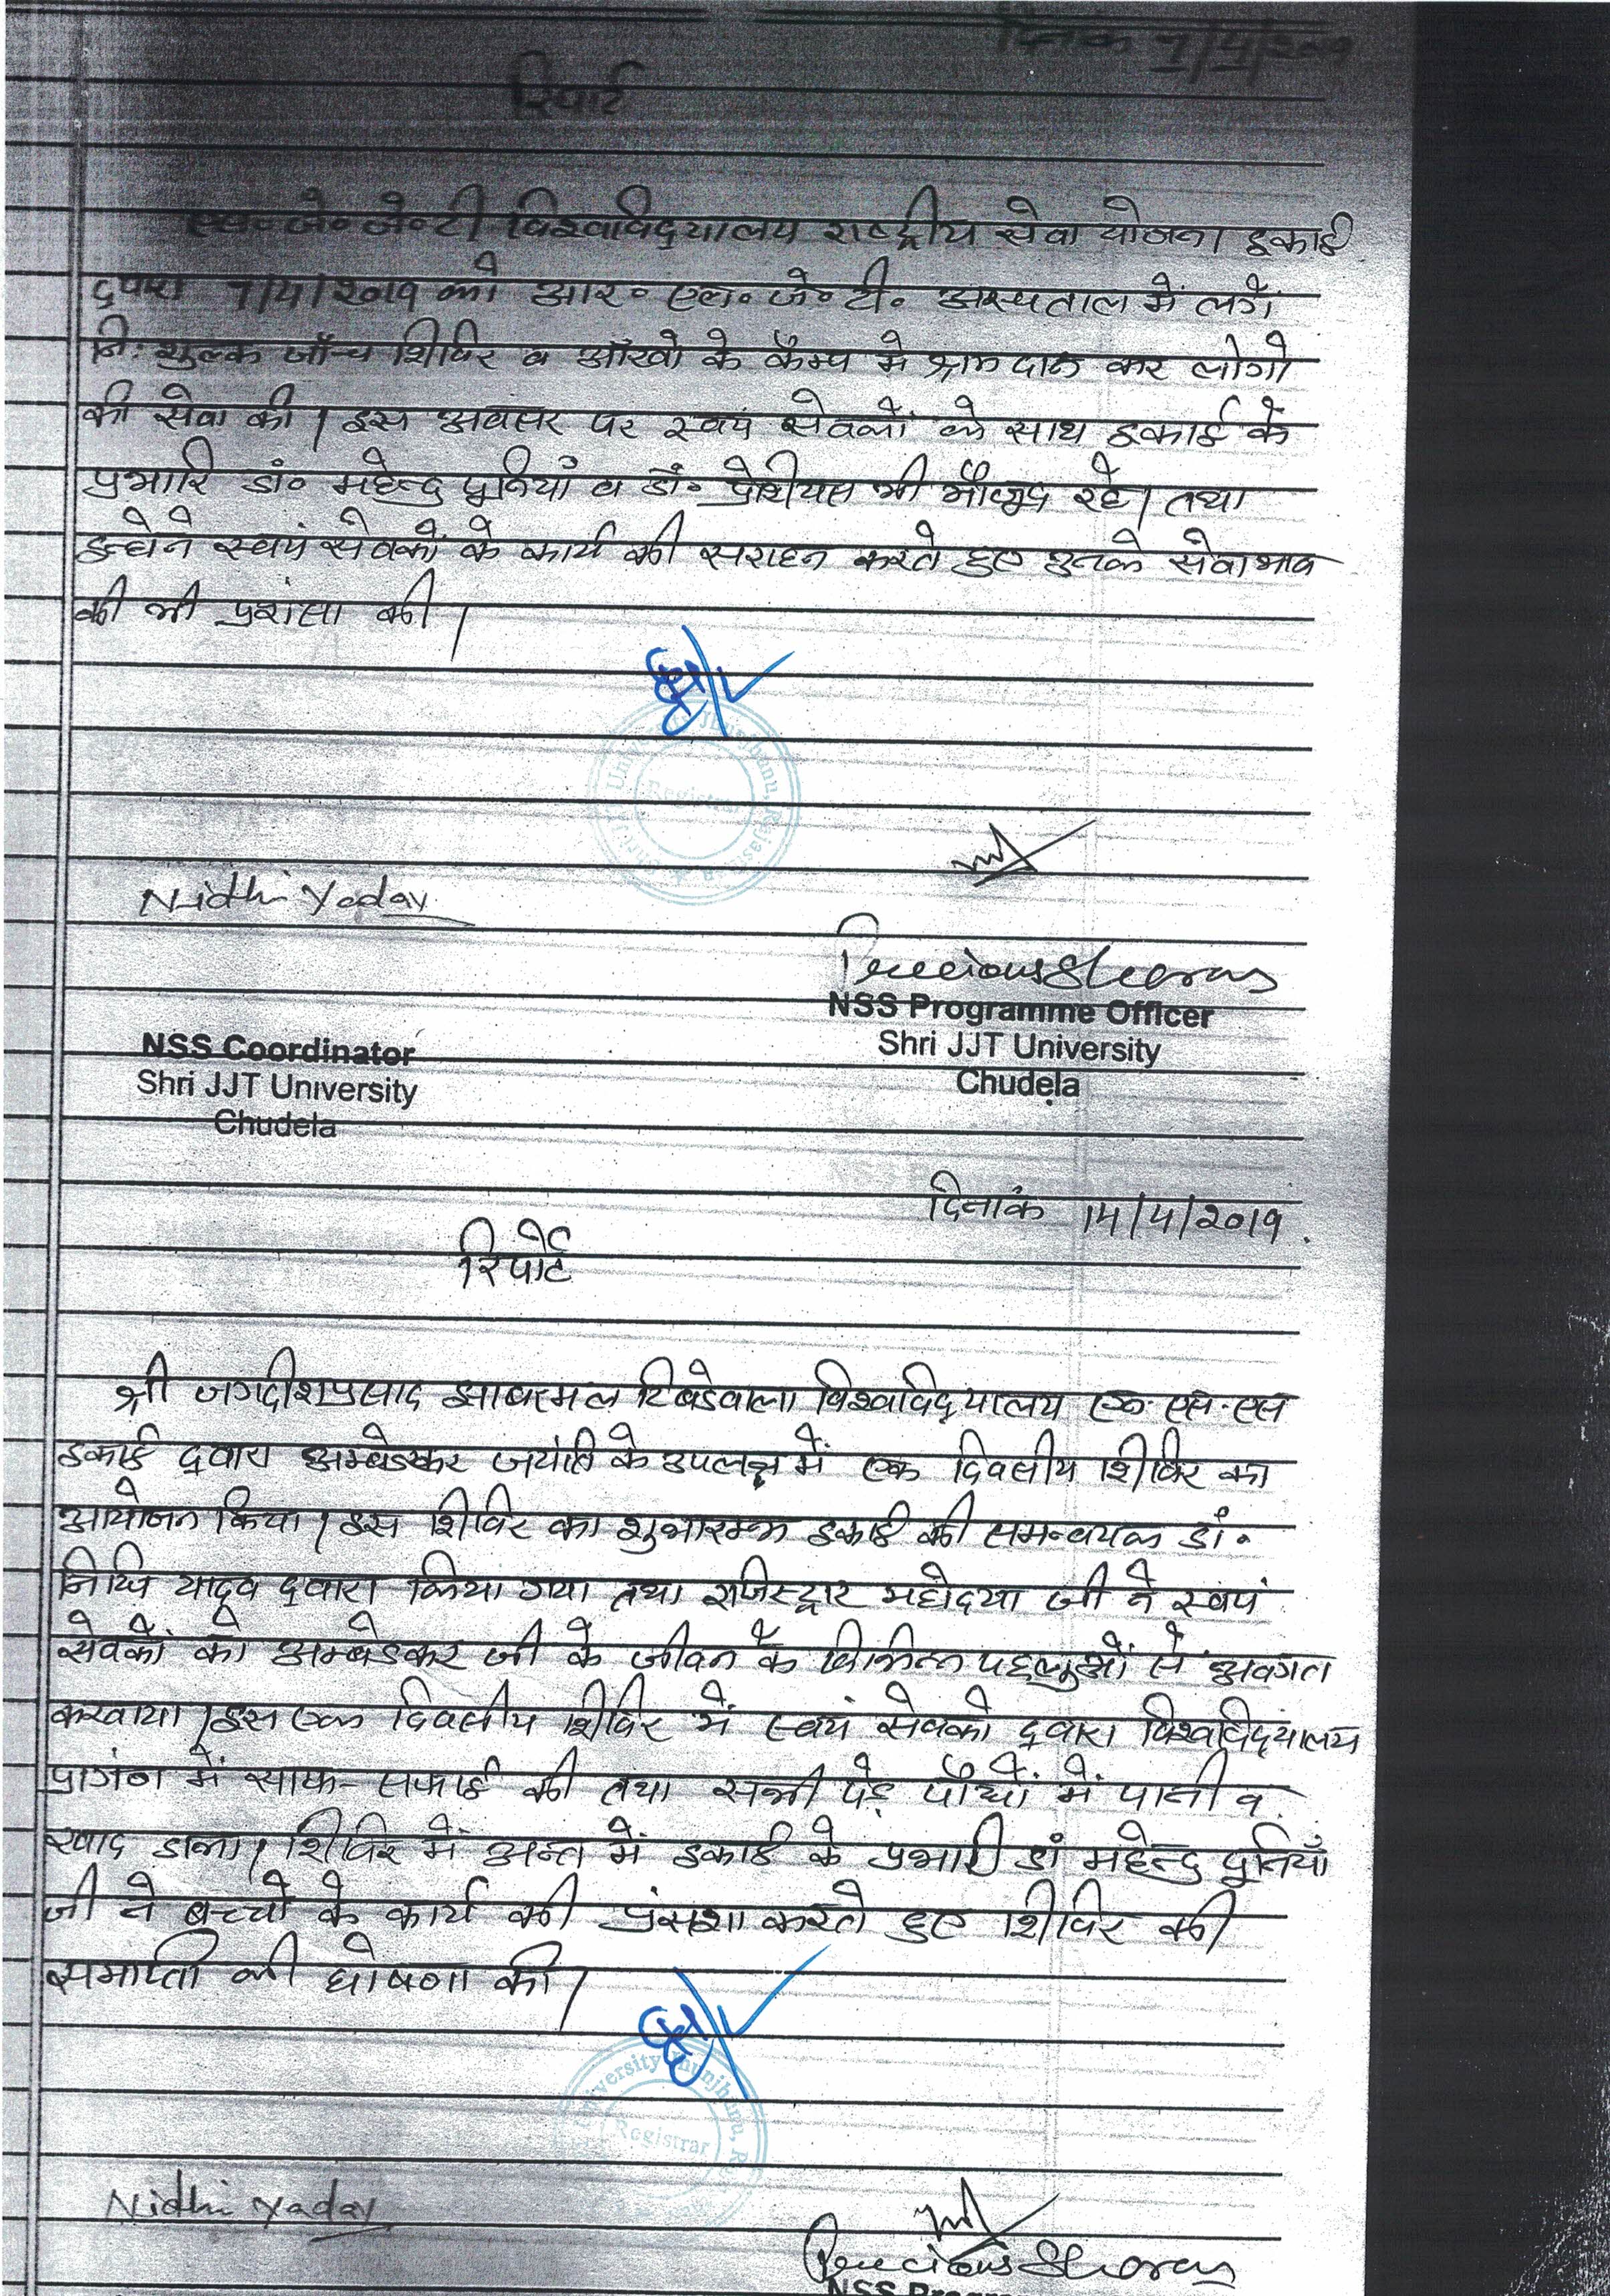 दिनांक 7/4/201
रिपोर्ट
एस॰जे॰जे॰टी विश्वविद्यालय राष्ट्रीय सेवा योजना इकाई
द्वारा 7/4/2019 को आर॰ एल॰ जे॰ टी॰ अस्पताल में लगें
नि:शुल्क जाँच शिविर व आँखो के कैम्प मे श्रमदान कर लोगो
की सेवा की। इस अवसर पर स्वयं सेवकों के साथ इकाई के
प्रभारि डां॰ महेन्द्र पूनियाँ व डाँ॰ प्रेशीयस भी मौजूद रहे। तथा
इन्होने स्वयं सेवकों के कार्य की सराहन करते हुए उनके सेवाभाव
की भी प्रशंसा की।
Shri JJT University Jhunjhunu, Rajasthan
Registrar
Nidhi Yadav
Precious Sheoran
NSS Programme Officer
Shri JJT University
Chudela
NSS Coordinator
Shri JJT University
Chudela
दिनांक 14/4/2019.
रिपोर्ट
श्री जगदीशप्रसाद झाबरमल टिबडेवाला विश्वविद्यालय एन.एस.एस
इकाई द्वारा अम्बेडकर जयंति के उपलक्ष में एक दिवसीय शिविर का
आयोजन किया। इस शिविर का शुभारम्भ इकाई की समन्वयक डां॰
निधि यादव द्वारा किया गया तथा रजिस्ट्रार महोदया जी ने स्वयं
सेवकों को अम्बेडकर जी के जीवन के विभिन्न पहलुओं से अवगत
करवाया। इस एक दिवसीय शिविर में स्वयं सेवको द्वारा विश्वविद्यालय
प्रागंण में साफ-सफाई की तथा सभी पेड़ पौधों में पानी व
खाद डाला। शिविर में अन्त में इकाई के प्रभारी डां महेन्द्र पूनियाँ
जी ने बच्चो के कार्य की प्रंसशा करते हुए शिविर की
समाप्ती की घोषणा की।
University Jhunjhunu, Ra
Registrar
Nidhi Yadav
Precious Sheoran
NSS Progr